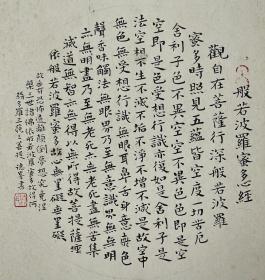 般若波羅蜜多心經
觀自在菩薩行深般若波羅
蜜多時照見五蘊皆空度一切苦厄
舍利子色不異空空不異色色即是空
空即是色受想行識亦復如是舍利子是諸
法空相不生不滅不垢不淨不增不減是故空中
無色無受想行識無眼耳鼻舌身意無色
聲香味觸法無眼界乃至無意識界無無明
亦無無明盡乃至無老死亦無老死盡無苦集
滅道無智亦無得以無所得故菩提薩埵
依般若波羅蜜多故心無罣礙無罣礙
故無有恐怖遠離顛倒夢想究竟涅
槃三世諸佛依般若波羅蜜多故得阿
耨多羅三藐三菩提